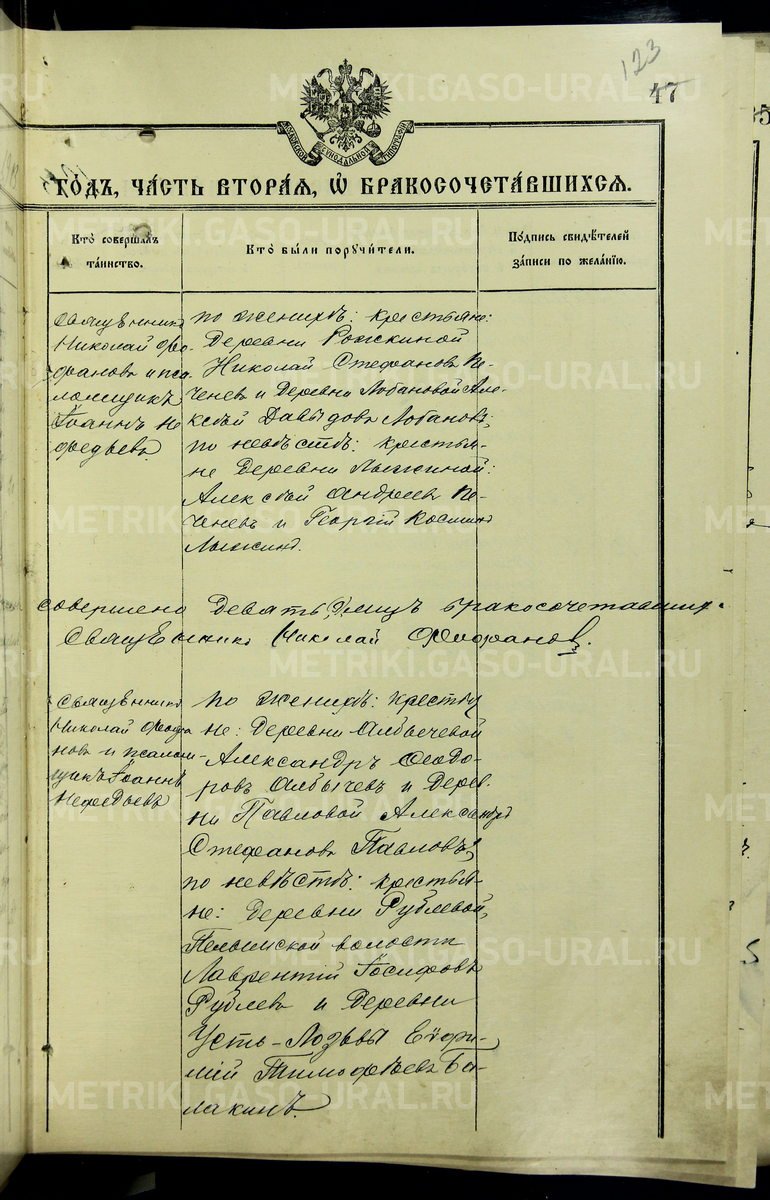 123
47
МОСКОВСКОЙ СѴНОДАЛЬНОЙ ТИПОГРАФІИ
ГО́ДЪ, ЧА́СТЬ ВТОРА́Я, Ѡ҆ БРАКОСОЧЕТА́ВШИХСЯ.
Кто̀ соверша́лъ
та́инство.
Кто̀ бы́ли поручи́тели.
По́дпись свидѣ́телей
за́писи по жела́нїю.
Священникъ
Николай Ѳео-
фановъ и пса-
ломщикъ
Іоаннъ Не
федьевъ
по женихѣ: крестьяне:
Деревни Рожкиной
Николай Стефановъ Пе-
ченевъ и Деревни Лобановой Але-
ксѣй Давыдовъ Лобановъ;
по невѣстѣ: крестья-
не Деревни Лыжиной:
Алексѣй Андреевъ Пе-
ченевъ и Георгій Космин
Лыжинъ.
совершено Девять лицъ бракосочетавших.
Священникъ Николай Ѳеофановъ.
Священникъ
Николай Ѳеофа
новъ и псалом-
щикъ Іоаннъ
Нефедьевъ
по женихѣ: крестья
не: Деревни Албычевой
Александръ Ѳеодо-
ровъ Албычевъ и Дерев
ни Павловой Александръ
Стефановъ Павловъ;
по невѣстѣ: крестья-
не: Деревни Рублевой,
Пелымской волости
Лаврентій Іосифовъ
Рублевъ и Деревни
Усть-Лозьвы Евфи-
мій Тимофѣевъ Ба-
лакинъ.
METRIKI.GASO-URAL.RU